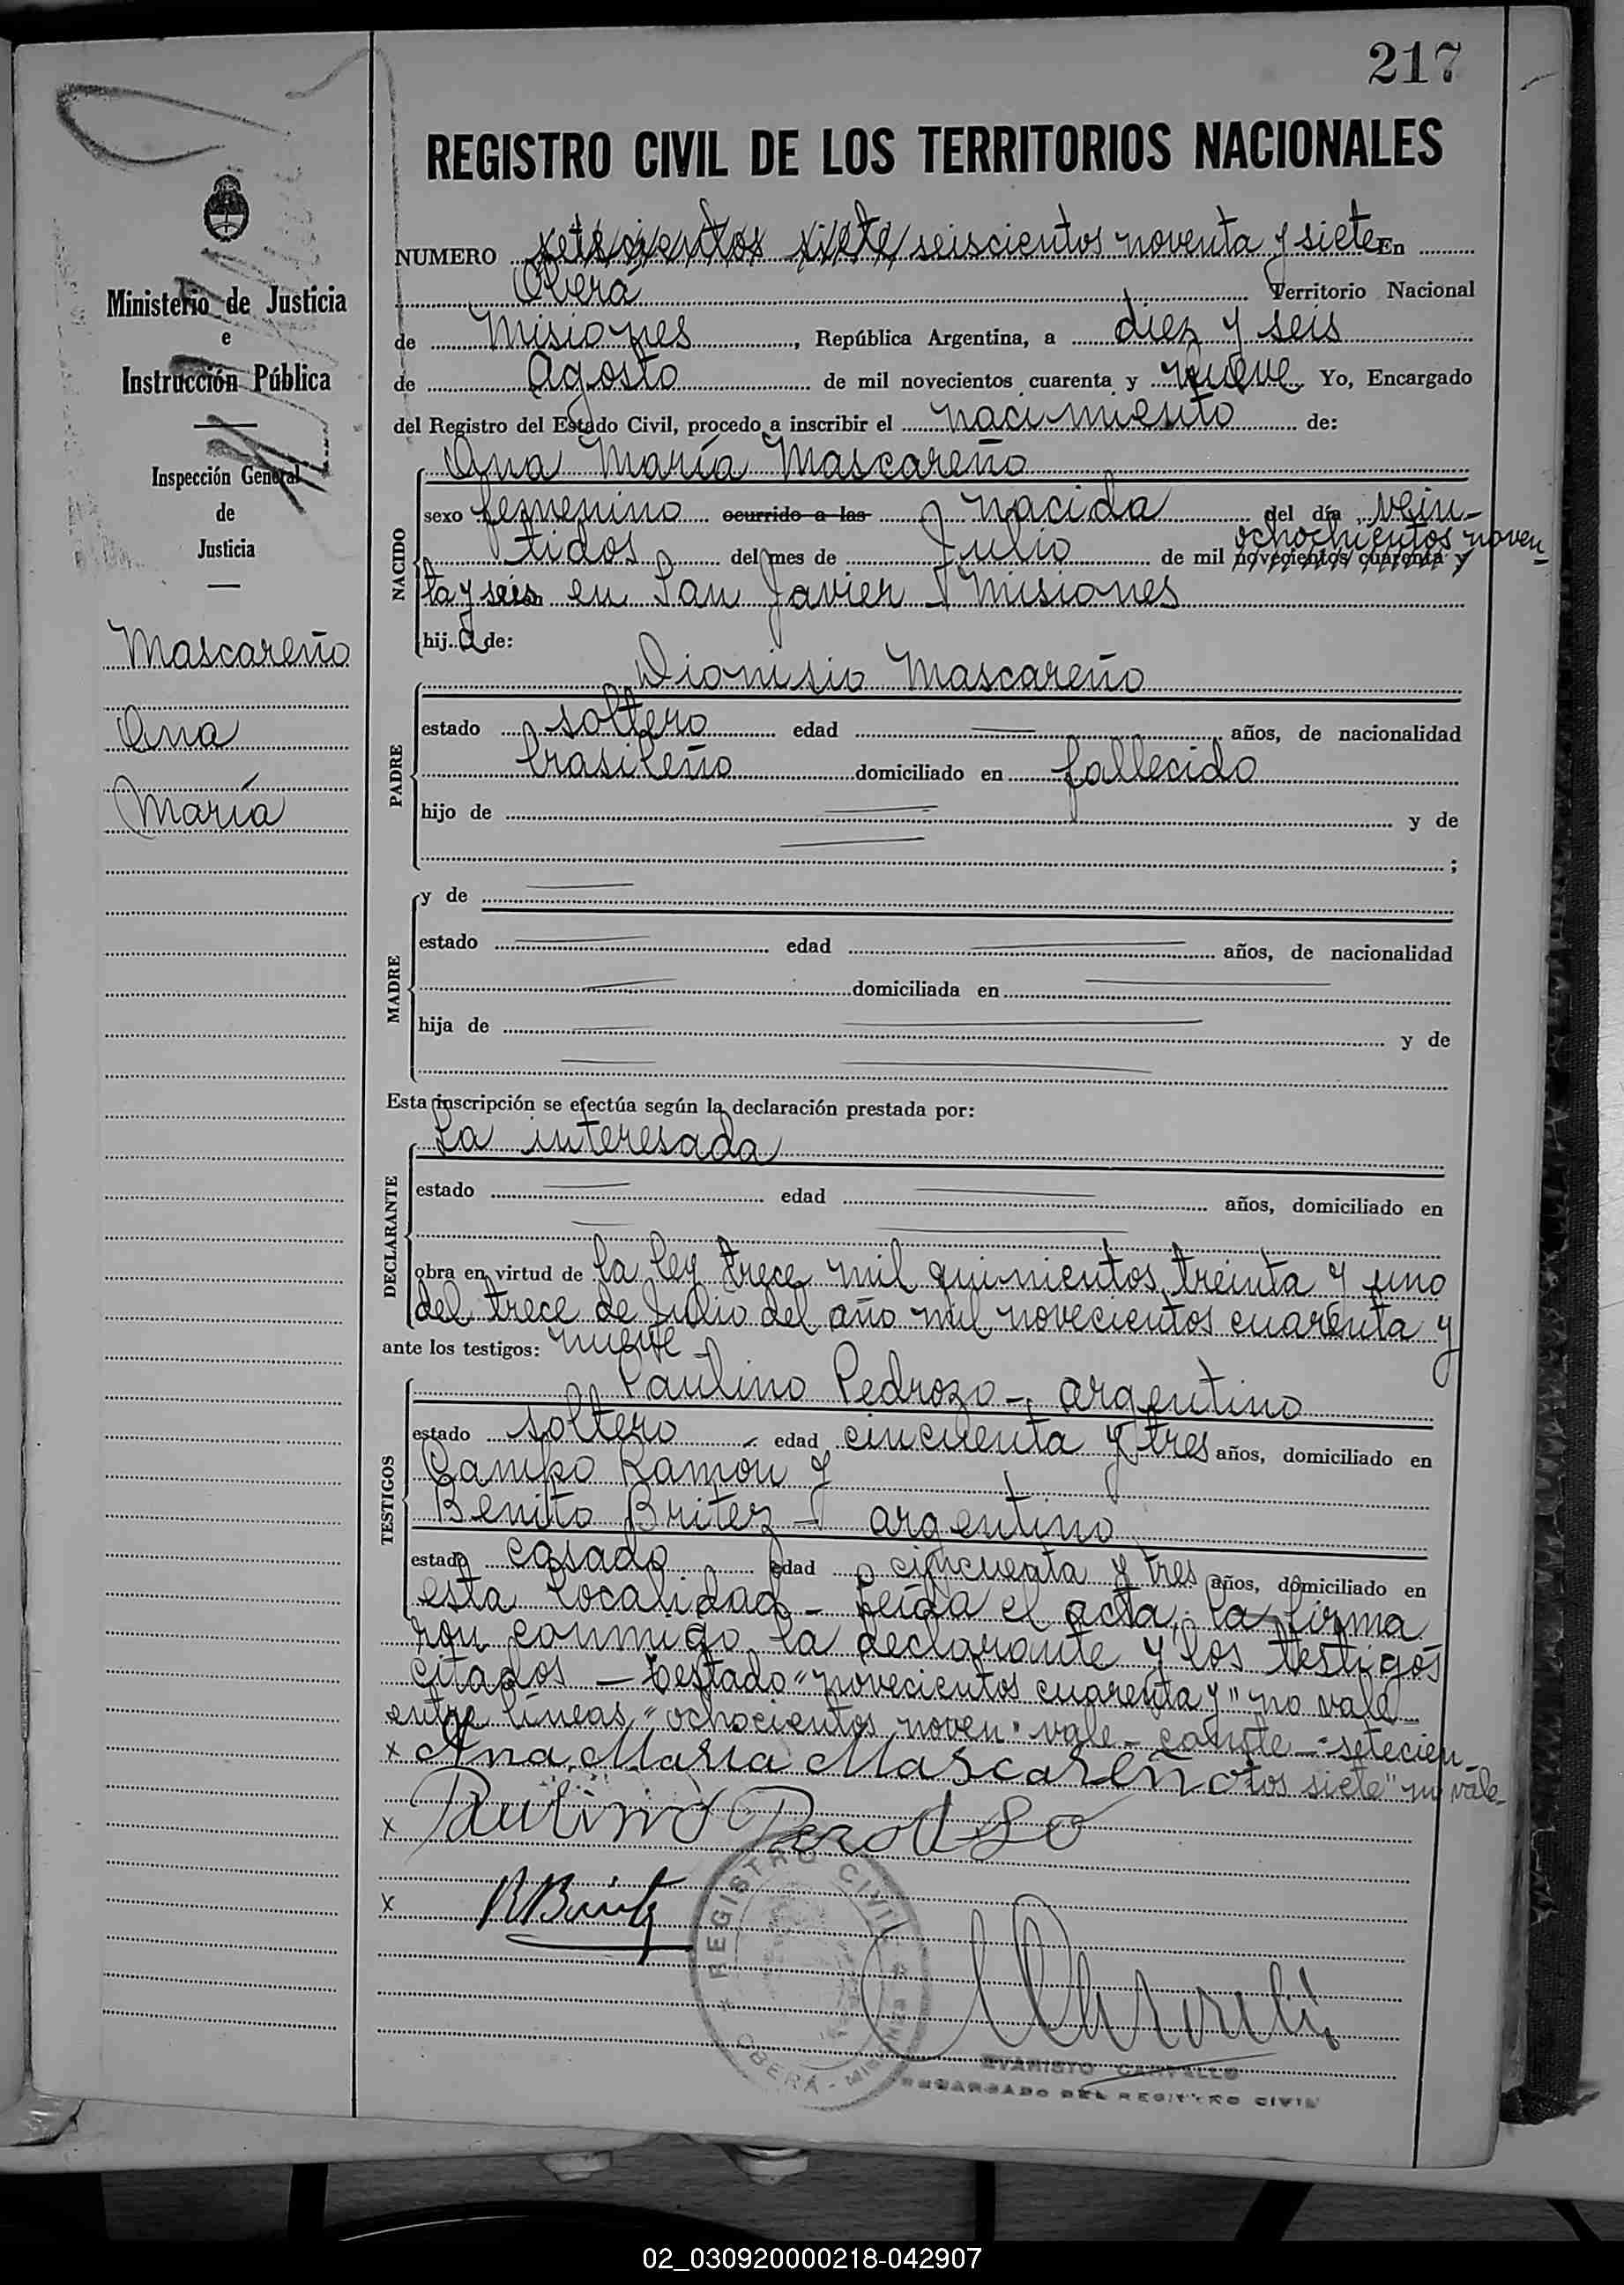 217
REGISTRO CIVIL DE LOS TERRITORIOS NACIONALES
NUMERO setecientos siete seiscientos noventa y siete En
Oberá Territorio Nacional
de Misiones, República Argentina, a diez y seis
de Agosto de mil novecientos cuarenta y nueve Yo, Encargado
del Registro del Estado Civil, procedo a inscribir el nacimiento de:
Ana María Mascareño
NACIDO
sexo femenino ocurrido a las nacida del día vein-
ochochientos noven-
tidos del mes de Julio de mil novecientos cuarenta y
ta y seis en San Javier - Misiones
hija de:
PADRE
Dionisio Mascareño
estado soltero edad — años, de nacionalidad
brasileño domiciliado en fallecido
hijo de — y de
— ;
MADRE
y de —
estado — edad — años, de nacionalidad
— domiciliada en —
hija de — y de
Esta inscripción se efectúa según la declaración prestada por:
DECLARANTE
La interesada
estado — edad — años, domiciliado en
obra en virtud de la ley trece mil quinientos treinta y uno
del trece de Julio del año mil novecientos cuarenta y
ante los testigos: nueve -
TESTIGOS
Paulino Pedrozo -, argentino
estado soltero edad cincuenta y tres años, domiciliado en
Campo Ramon y
Benito Britez - argentino
estado casado edad cincuenta y tres años, domiciliado en
esta localidad - Leída el acta, la firma
ron conmigo la declarante y los testigos
citados - testado "novecientos cuarenta y" no vale
entre líneas "ochocientos noven" vale - "setecien
x Ana María Mascareño tos siete" no vale -
x Paulino
x
REGISTRO CIVIL
OBERA - MISIONES
EVARISTO CARVALLO
ENCARGADO DEL REGISTRO CIVIL
Ministerio de Justicia
e
Instrucción Pública
Inspección General
de
Justicia
Mascareño
Ana
María
02_030920000218-042907